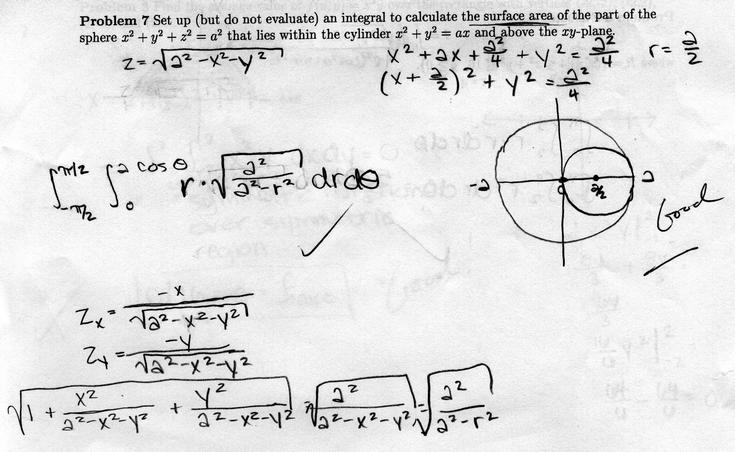 Problem 7 Set up (but do not evaluate) an integral to calculate the surface area of the part of the
sphere x² + y² + z² = a² that lies within the cylinder x² + y² = ax and above the xy-plane.
z = √(a² - x² - y²)
x² + ax + a²/4 + y² = a²/4   r = a/2
(x + a/2)² + y² = a²/4
∫_{-π/2}^{π/2} ∫_0^{a cos θ} r · √(a²/(a² - r²)) dr dθ
-a   a/2   a
Good
z_x = -x/√(a² - x² - y²)
z_y = -y/√(a² - x² - y²)
√(1 + x²/(a² - x² - y²) + y²/(a² - x² - y²)) = √(a²/(a² - x² - y²)) = √(a²/(a² - r²))